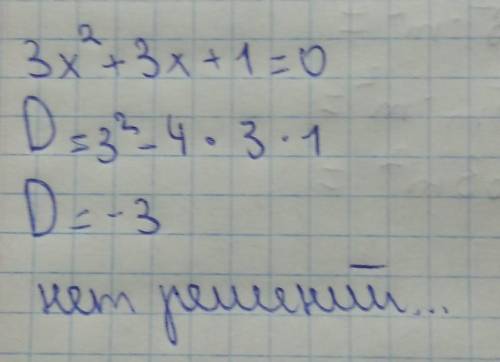 3x² + 3x + 1 = 0
D = 3² - 4 · 3 · 1
D = -3
нет решений...